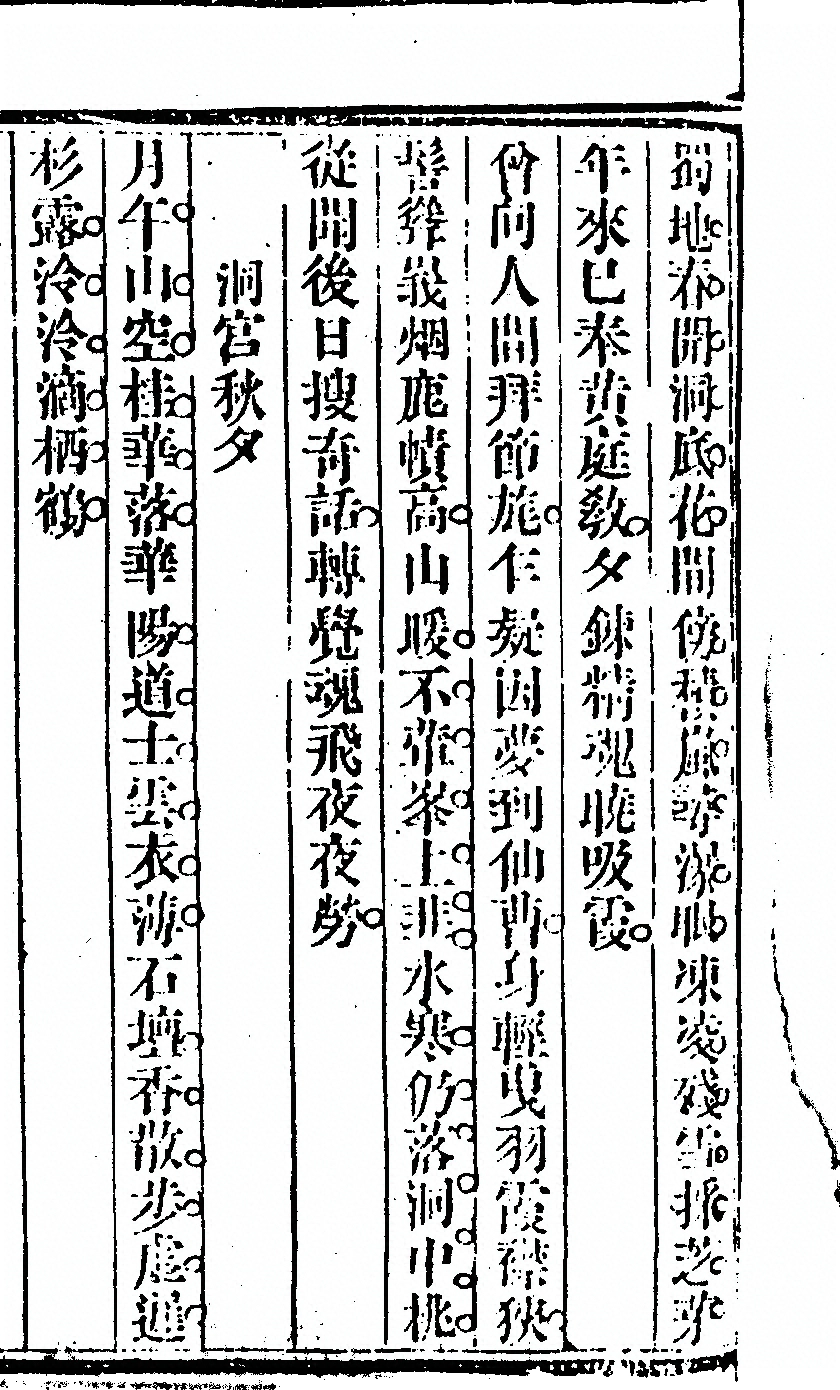 蜀地春開洞底花間傍積嵐尋瀑眼凍凌殘雪採芝芽
年來已奉黄庭教夕鍊精魂曉吸霞
曾向人間拜節旄乍疑因夢到仙曹身輕曳羽霞襟狹
髻聳峩烟鹿幘高山暖不葷峯上韭水寒仍落洞中桃
從開後日搜奇話轉覺魂飛夜夜勞
洞宫秋夕
月午山空桂華落華陽道士雲衣薄石壇香散步虛
杉露泠泠滴栖鶴